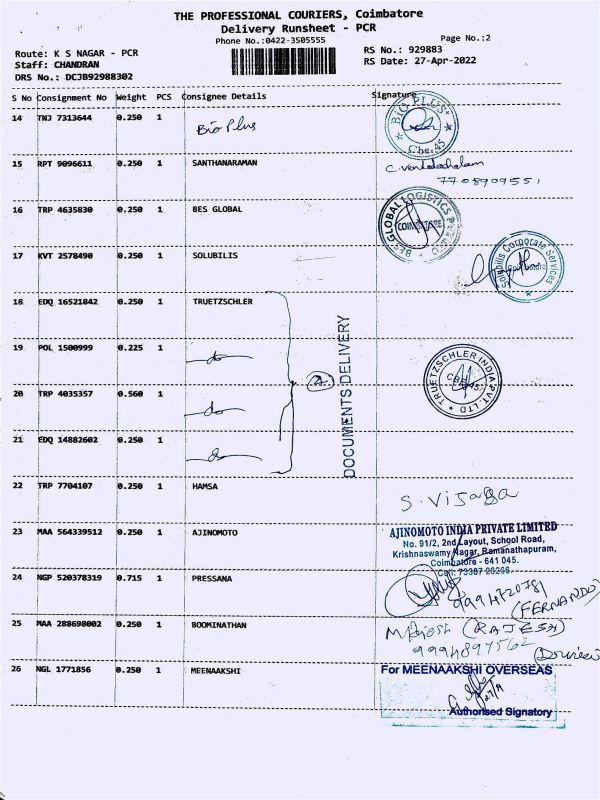 THE PROFESSIONAL COURIERS, Coimbatore
Delivery Runsheet - PCR
Phone No.:0422-3505555
Page No.:2
Route: K S NAGAR - PCR
RS No.: 929883
Staff: CHANDRAN
RS Date: 27-Apr-2022
DRS No.: DCJB92988302
S No Consignment No Weight PCS Consignee Details Signature
14 TNJ 7313644 0.250 1 Bio Plus
BIO PLUS
Cbe.45
15 RPT 9096611 0.250 1 SANTHANARAMAN C venkatachalam
7708909551
16 TRP 4635830 0.250 1 BES GLOBAL
BES GLOBAL LOGISTICS
COIMBATORE
17 KVT 2578490 0.250 1 SOLUBILIS
Solubilis Corporate Services
Coimbatore
18 EDQ 16521842 0.250 1 TRUETZSCHLER
19 POL 1500999 0.225 1 do
20 TRP 4035357 0.560 1 do
21 EDQ 14882602 0.250 1 do
DOCUMENTS DELIVERY
TRUETZSCHLER INDIA PVT. LTD
CBE-45
22 TRP 7704107 0.250 1 HAMSA S. Visagga
23 MAA 564339512 0.250 1 AJINOMOTO
AJINOMOTO INDIA PRIVATE LIMITED
No. 91/2, 2nd Layout, School Road,
Krishnaswamy Nagar, Ramanathapuram,
Coimbatore - 641 045.
24 NGP 520378319 0.715 1 PRESSANA
9994720781
(FERNANDO)
25 MAA 288698002 0.250 1 BOOMINATHAN (RAJESH)
9994897562
26 NGL 1771856 0.250 1 MEENAAKSHI
For MEENAAKSHI OVERSEAS
Authorised Signatory